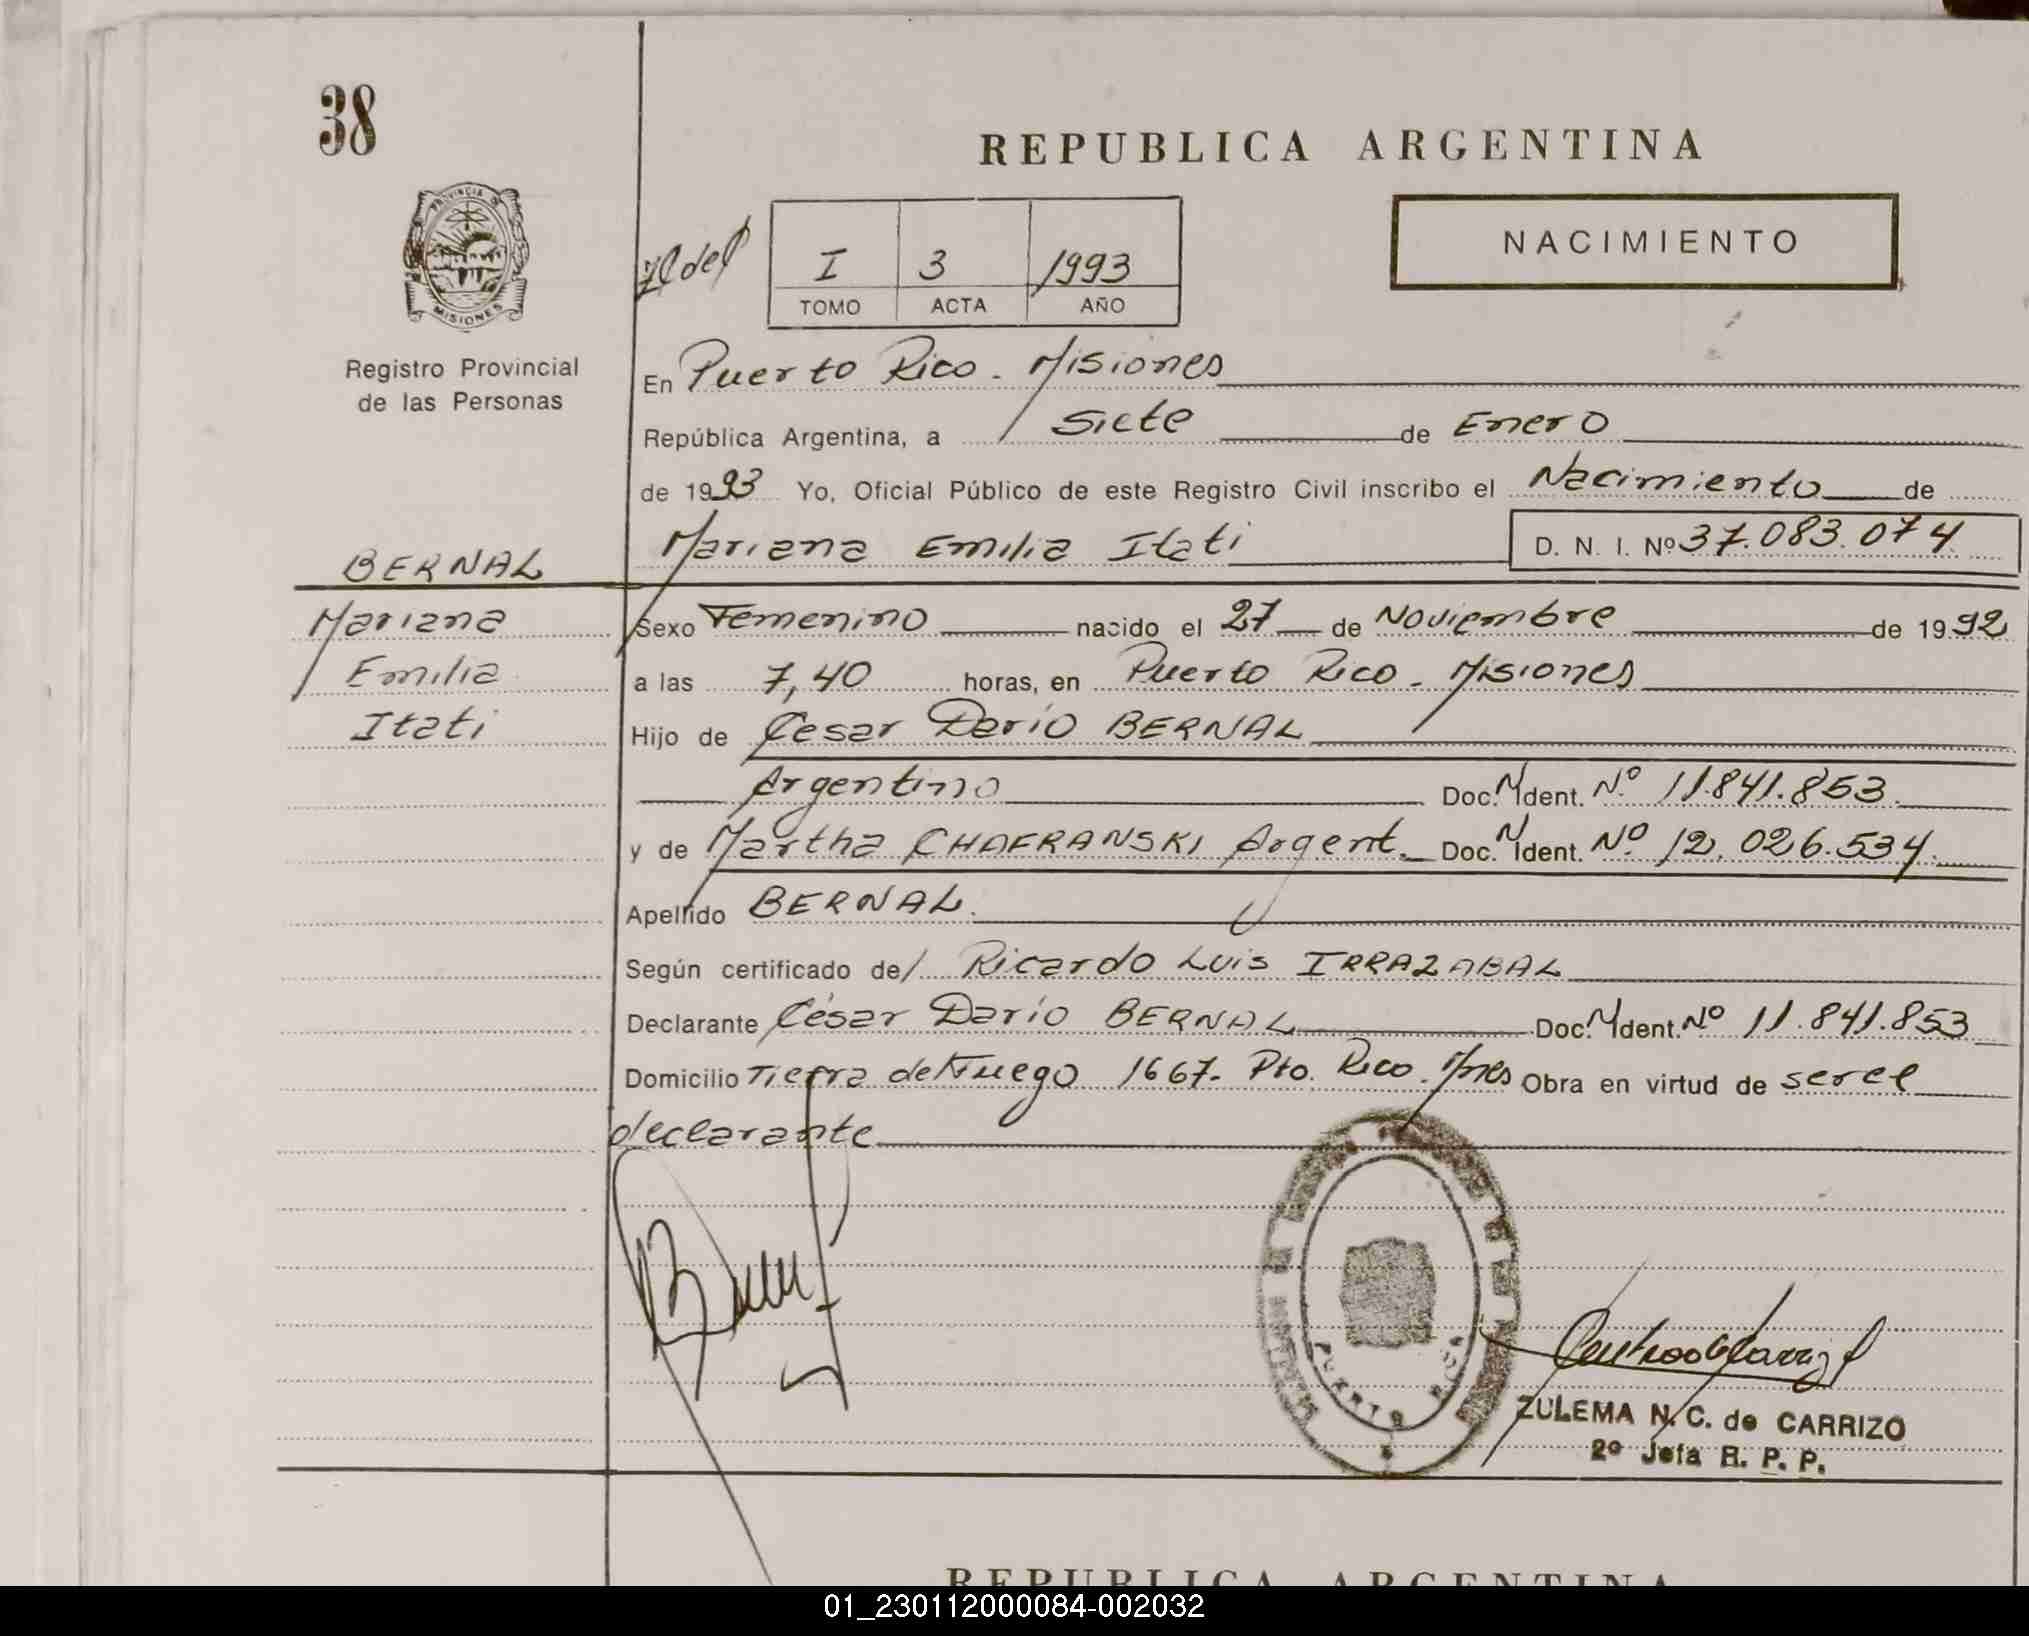 38
REPUBLICA ARGENTINA
PROVINCIA DE
MISIONES
NACIMIENTO
I 3 1993
TOMO ACTA AÑO
Registro Provincial
de las Personas
En Puerto Rico. Misiones
República Argentina, a Siete de Enero
de 1993 Yo, Oficial Público de este Registro Civil inscribo el Nacimiento de
Mariana Emilia Itati D. N. I. Nº 37.083.074
BERNAL
Mariana
Emilia
Itati
Sexo Femenino nacido el 27 de Noviembre de 1992
a las 7,40 horas, en Puerto Rico. Misiones
Hijo de Cesar Darío BERNAL
Argentino Doc. N Ident. Nº 11.841.853.
y de Martha CHAFRANSKI Argent. Doc. N Ident. Nº 12.026.534.
Apellido BERNAL.
Según certificado de/ Ricardo Luis IRRAZABAL
Declarante César Darío BERNAL Doc. N Ident. Nº 11.841.853
Domicilio Tierra de Fuego 1667. Pto. Rico. Mnes Obra en virtud de ser el
declarante
PUERTO RICO
ZULEMA N. C. de CARRIZO
2º Jefa R. P. P.
REPUBLICA ARGENTINA
01_230112000084-002032